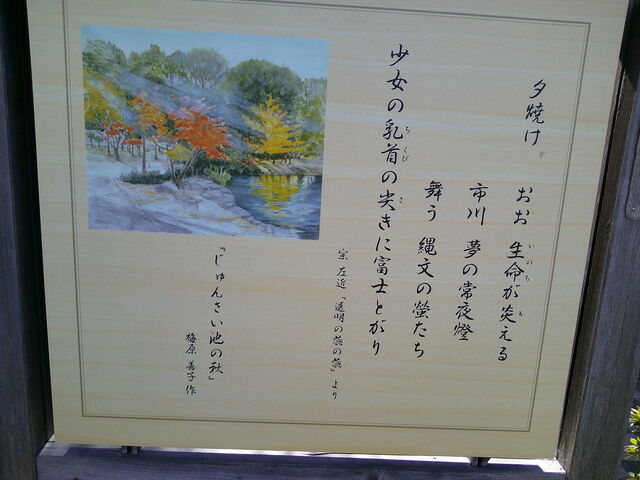 夕燒け
おお 生命が炎える
いのち も
市川 夢の常夜燈
舞う 縄文の螢たち
少女の乳首の尖きに富士とがり
ちくび さ
宗 左近 「透明の蕊の蕊」より
『じゅんさい池の秋』
梅原 善子 作